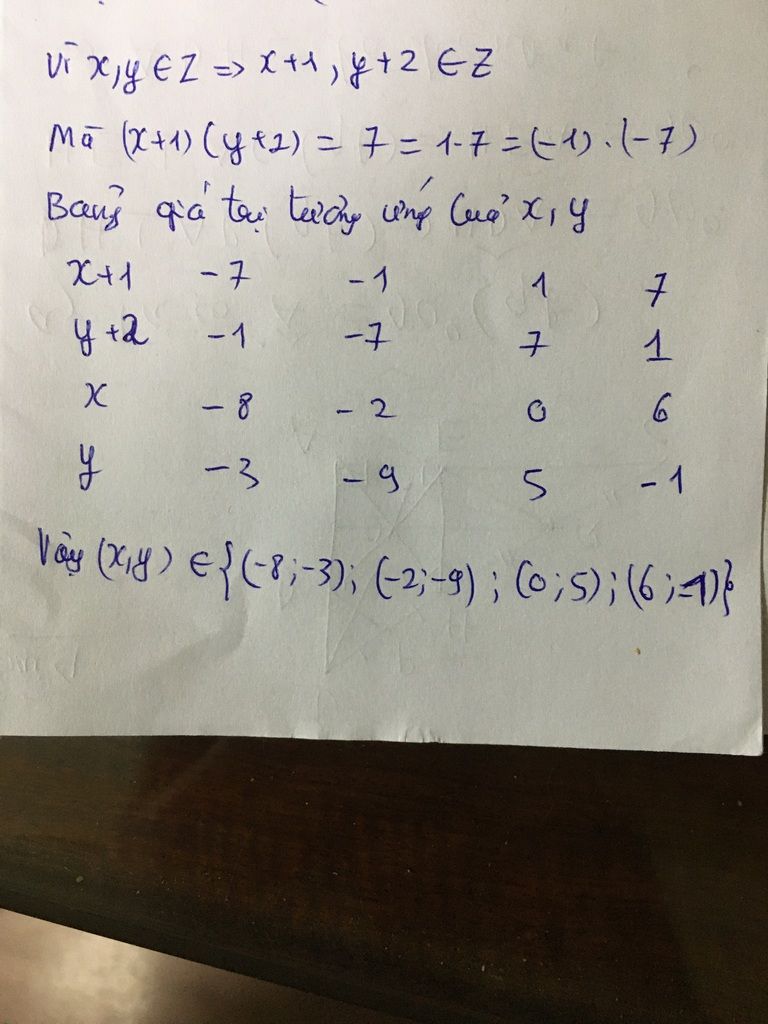 Vì x,y ∈ Z => x+1, y+2 ∈ Z
Mà (x+1)(y+2) = 7 = 1.7 = (-1).(-7)
Bảng giá trị tương ứng của x, y
x+1 -7 -1 1 7
y+2 -1 -7 7 1
x -8 -2 0 6
y -3 -9 5 -1
Vậy (x,y) ∈ {(-8;-3); (-2;-9); (0;5); (6;-1)}